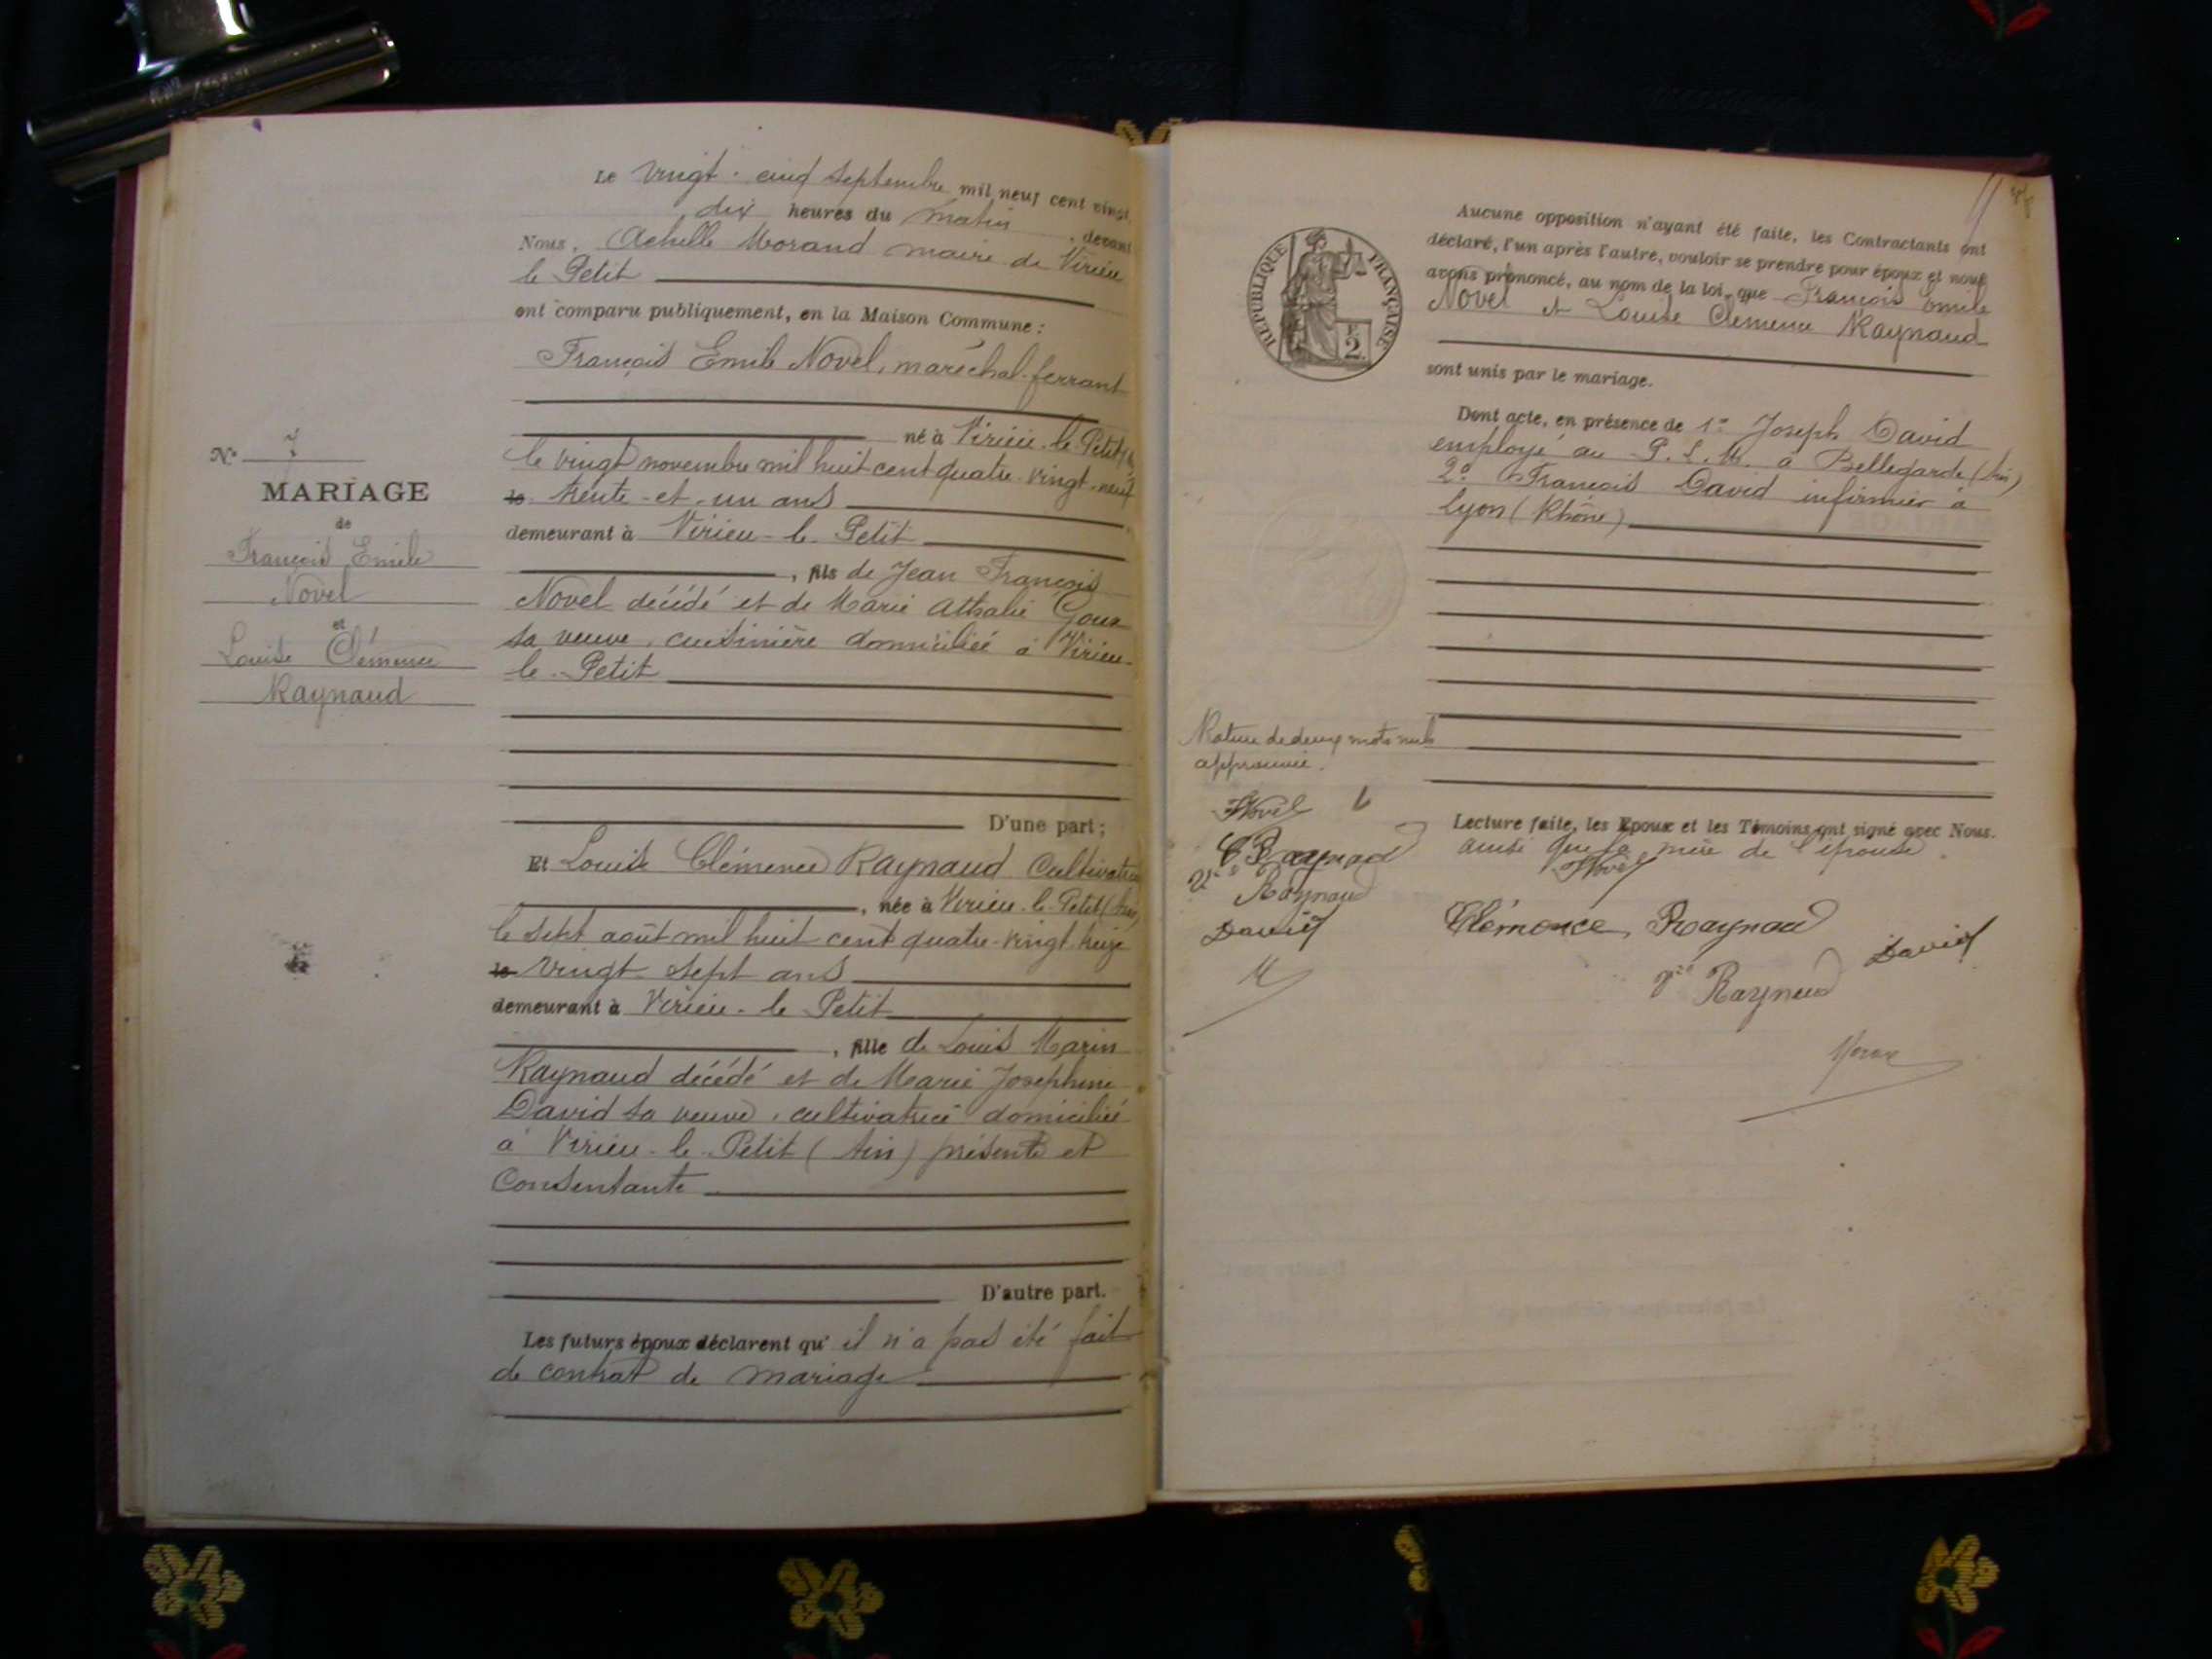 Le vingt-cinq septembre mil neuf cent vingt,
dix heures du matin, devant
Nous, Achille Morand maire de Virieu
le Petit
ont comparu publiquement, en la Maison Commune :
François Emile Novel, maréchal-ferrant
né à Virieu-le-Petit
le vingt novembre mil huit cent quatre-vingt-neuf
le trente-et-un ans
demeurant à Virieu-le-Petit
, fils de Jean François
Novel décédé et de Marie Athalie Goux
sa veuve, cuisinière domiciliée à Virieu-
le-Petit
N° 7
MARIAGE
de
François Emile
Novel
et
Louise Clémence
Raynaud
D'une part ;
Et Louise Clémence Raynaud Cultivatrice
, née à Virieu-le-Petit (Ain)
le sept août mil huit cent quatre-vingt treize
le vingt-sept ans
demeurant à Virieu-le Petit
, fille de Louis Marin
Raynaud décédé et de Marie Josephine
David sa veuve, cultivatrice domiciliée
à Virieu-le-Petit (Ain) présente et
Consentante
D'autre part.
Les futurs époux déclarent qu'il n'a pas été fait
de contrat de mariage
REPUBLIQUE FRANÇAISE
2
Aucune opposition n'ayant été faite, les Contractants ont
déclaré, l'un après l'autre, vouloir se prendre pour époux et nous
avons prononcé, au nom de la loi, que François Emile
Novel et Louise Clémence Raynaud
sont unis par le mariage.
Dont acte, en présence de 1° Joseph David
employé au P.L.M. à Bellegarde (Ain)
2° François David infirmier à
Lyon (Rhône)
Rature de deux mots nuls
approuvée.
Novel
C Raynaud
Vve Raynaud
David
M
Lecture faite, les Epoux et les Témoins ont signé avec Nous.
ainsi que la mère de l'épouse.
Novel
Clémence Raynaud
David
Vve Raynaud